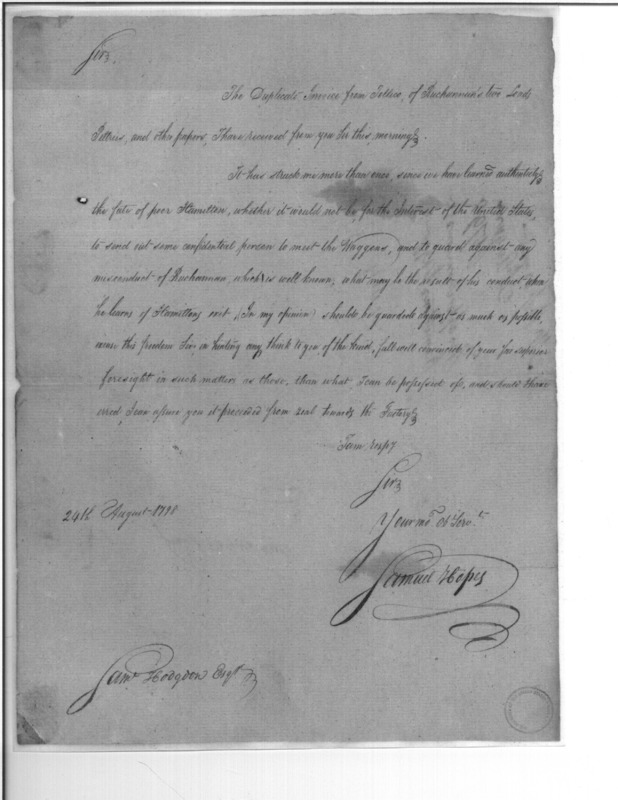 Sir,
The Duplicate Invoice from Tellico, of Buchannan's two Loads
Peltries, and other papers, I have received from you Sir this morning.
It has struck me more than once, since we have learned authenticly
the fate of poor Hamilton, whether it would not be for the Interest of the United States,
to send out some confidential person to meet the Waggons, and to guard against any
misconduct of Buchannan, which is well known; what may be the result of his conduct, when
he learns of Hamiltons exit, (In my opinion) should be guarded against as much as possible
excuse this freedom Sir, in hinting any think to you, of the kind, full well convinced of your far superior
foresight in such matters as these, than what I can be possessed of, and should I have
erred, I can assure you it proceeded from zeal towards the Factory
I am resp'y
Sir,
Your mo. Ob. Serv.t
Samuel Hopes
24th August 1798
Sam.l Hodgdon Esq.r